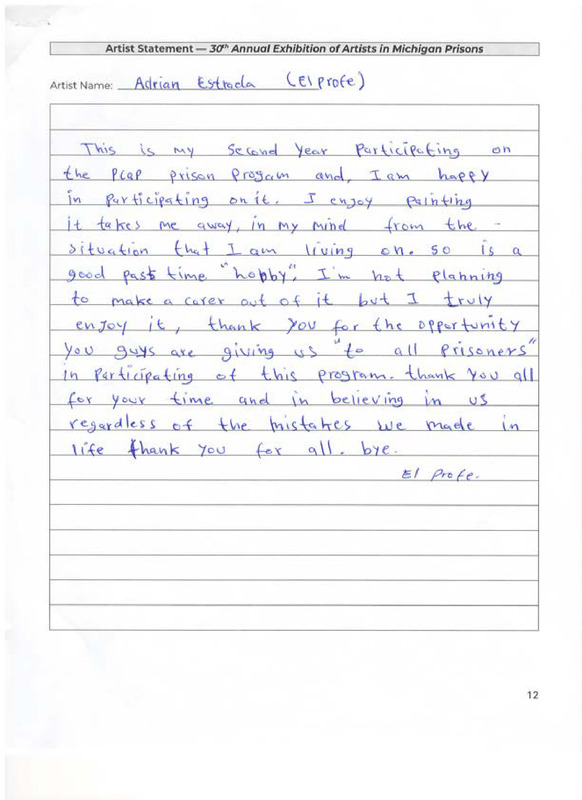 Artist Statement — 30th Annual Exhibition of Artists in Michigan Prisons
Artist Name: Adrian Estrada (El profe)
This is my second year participating on
the PCAP prison Progam and, I am happy
in participating on it. I enjoy painting
it takes me away, in my mind from the -
situation that I am living on. so is a
good past time "hobby". I'm not planning
to make a carer out of it but I truly
enjoy it, thank you for the opportunity
you guys are giving us "to all prisoners"
in participating of this program. thank you all
for your time and in believing in us
regardless of the mistakes we made in
life thank you for all. bye.
El Profe.
12